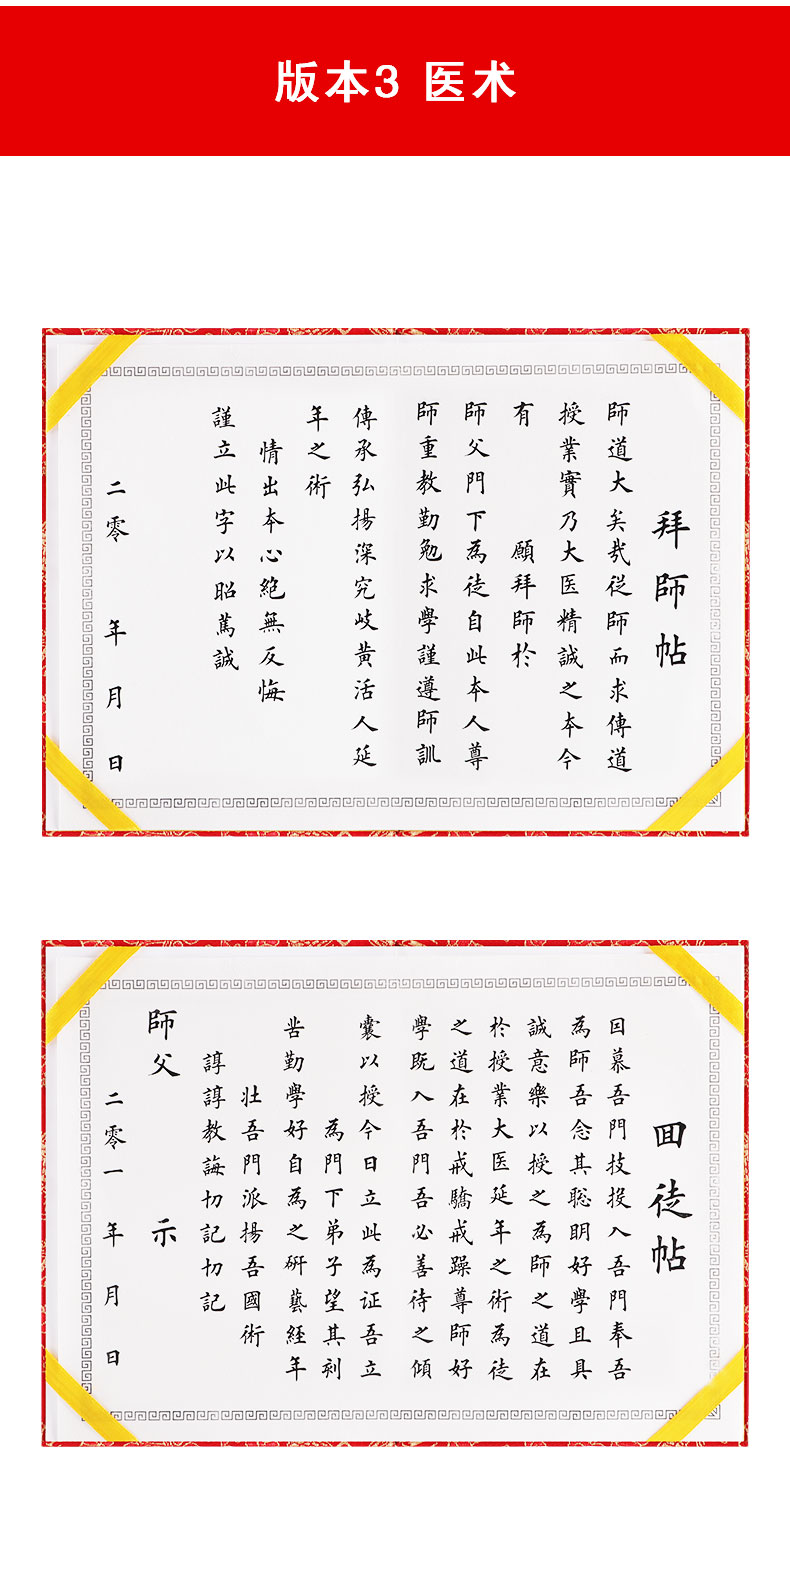 版本3 医术
拜師帖
師道大矣哉從師而求傳道
授業實乃大医精誠之本今
有 願拜師於
師父門下為徒自此本人尊
師重教勤勉求學謹遵師訓
傳承弘揚深究岐黄活人延
年之術
情出本心絶無反悔
謹立此字以昭篤誠
二零 年 月 日
回徒帖
因慕吾門技投入吾門奉吾
為師吾念其聡明好學且具
誠意樂以授之為師之道在
於授業大医延年之術為徒
之道在於戒驕戒躁尊師好
學既入吾門吾必善待之傾
囊以授今日立此為证吾立
為門下弟子望其刻
苦勤學好自為之研藝經年
壮吾門派揚吾國術
諄諄教誨切記切記
師父 示
二零一 年 月 日